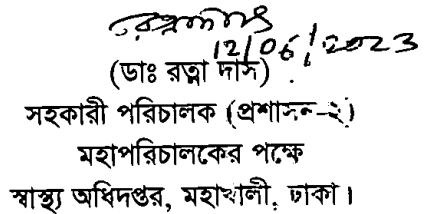 12/06/2023
(ডাঃ রত্না দাস)
সহকারী পরিচালক (প্রশাসন-২)
মহাপরিচালকের পক্ষে
স্বাস্থ্য অধিদপ্তর, মহাখালী, ঢাকা।